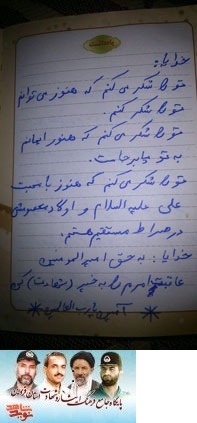 یادداشت
خدایا:
تو را شکر می کنم که هنوز می توانم
تو را شکر کنم.
تو را شکر می کنم که هنوز ایمانم
به تو پابرجاست.
تو را شکر می کنم که هنوز با محبت
علی علیه السلام و اولاد معصومش
در صراط مستقیم هستم.
خدایا: به حق امیرالمومنین
عاقبت امرم را به خیر (شهادت) کن
* آمین یا رب العالمین *
پایگاه جامع فرهنگ ایثار و شهادت استان قزوین
نوید شاهد